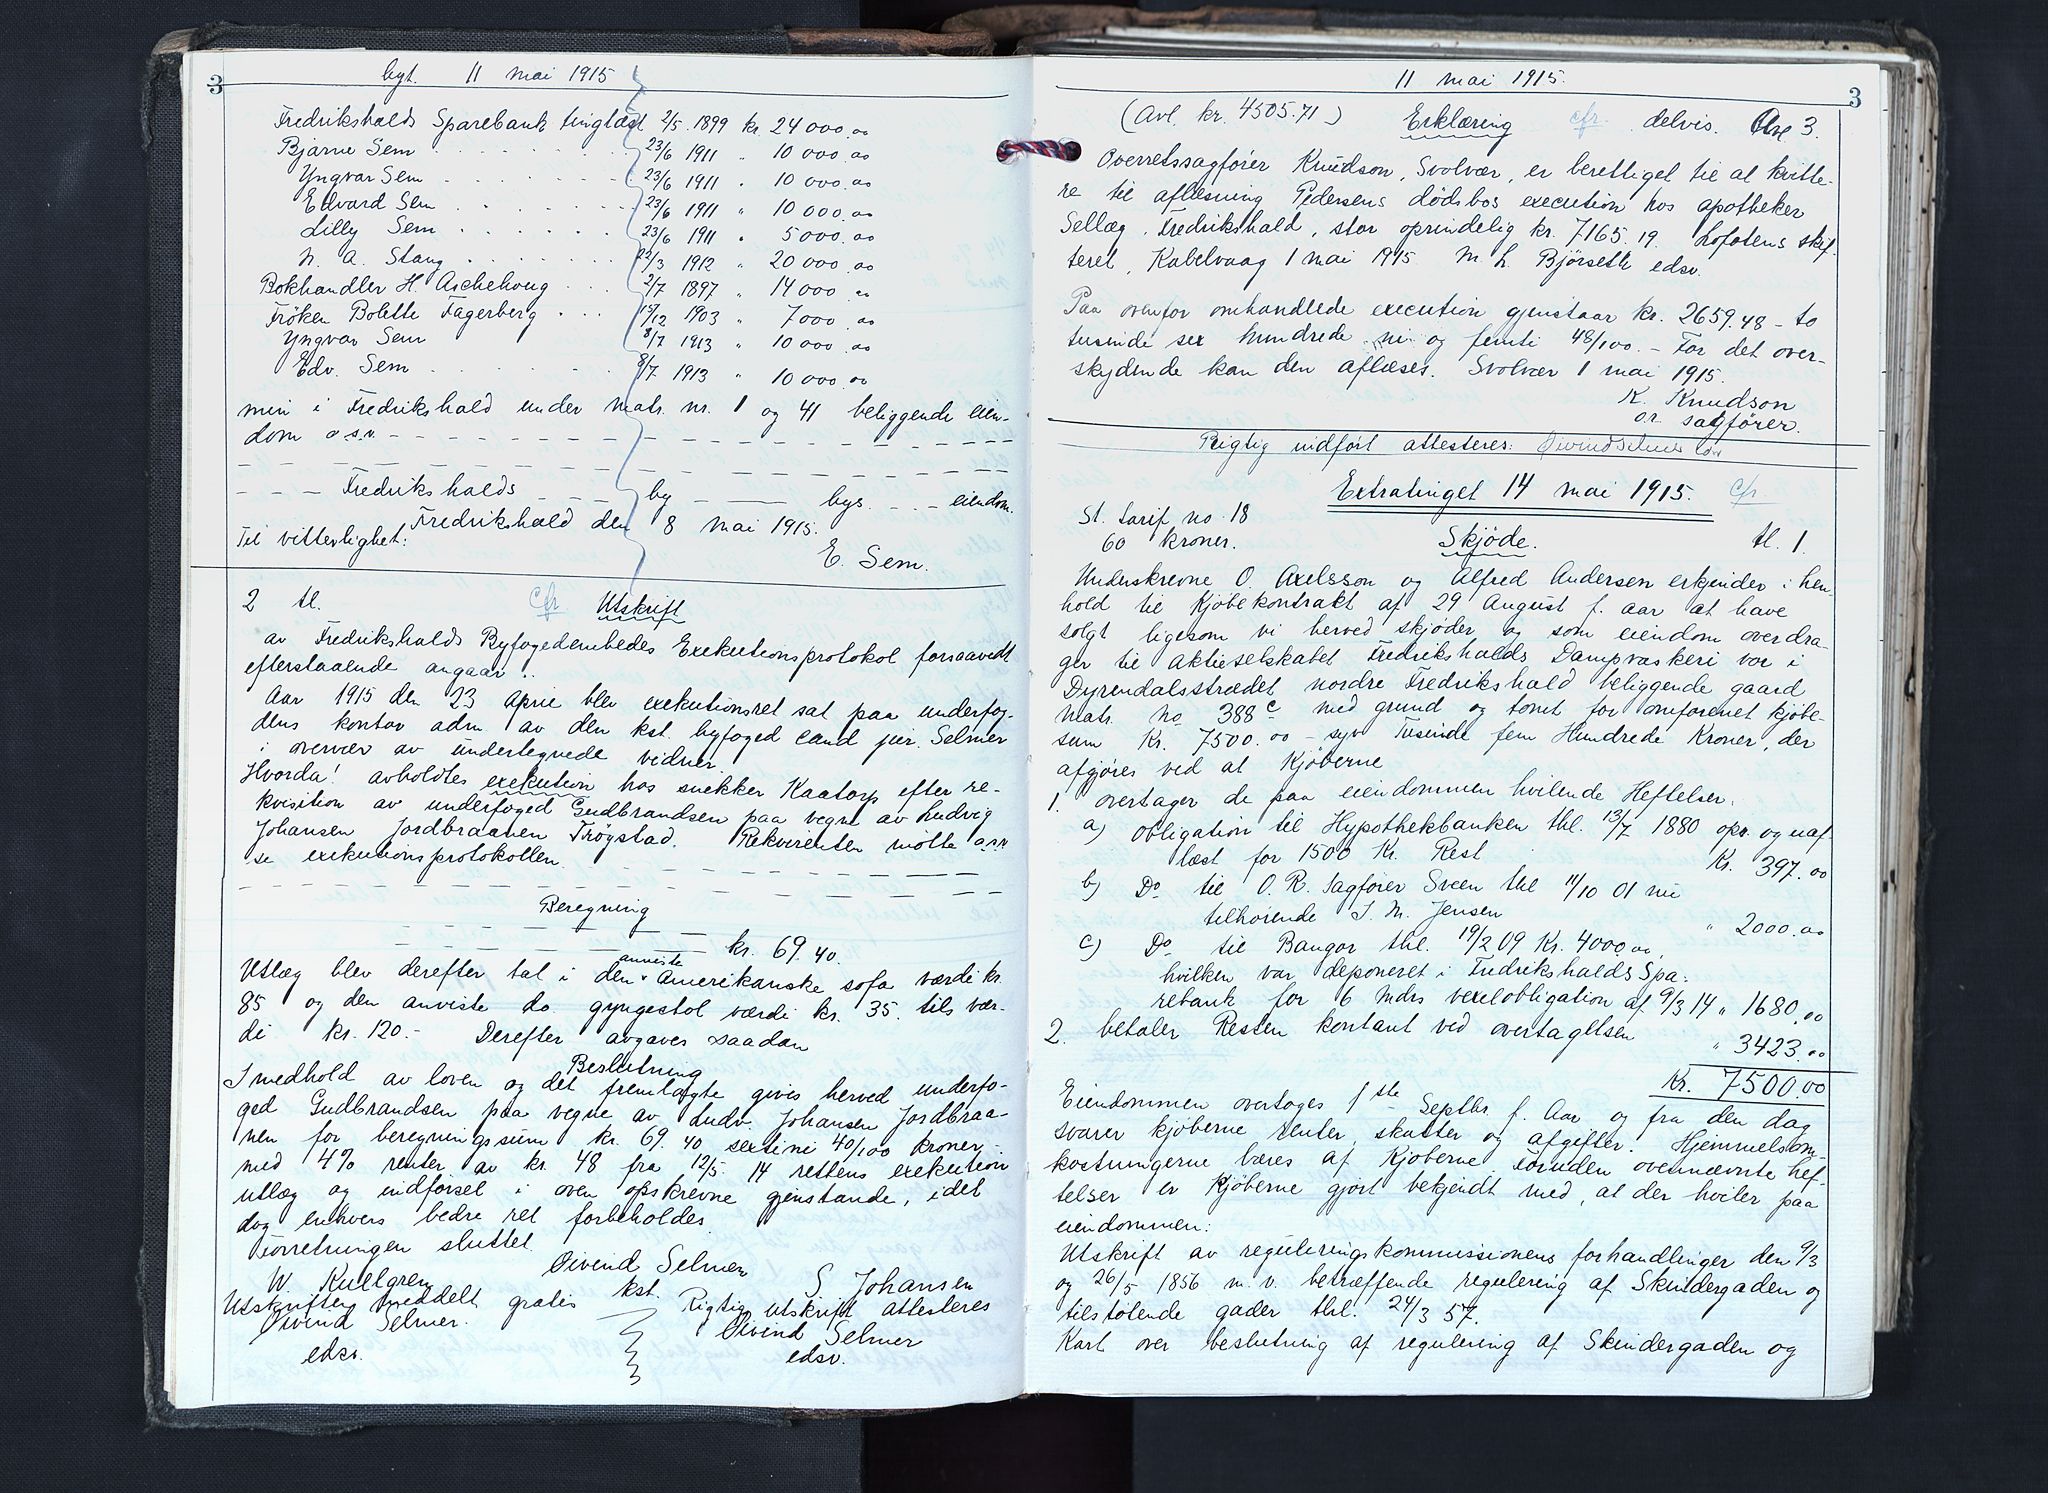 3
byt. 11 mai 1915
Fredrikshalds Sparebank tinglæst 2/5 1899 kr. 24 000.00
Bjarne Sem 23/6 1911 " 10 000.00
Yngvar Sem 23/6 1911 " 10 000.00
Edvard Sem 23/6 1911 " 10 000.00
Lilly Sem 23/6 1911 " 5 000.00
N. A. Stang 22/3 1912 " 20 000.00
Bokhandler H. Aschehoug 2/7 1897 " 14 000.00
Fröken Bolette Fagerberg 15/12 1903 " 7 000.00
Yngvar Sem 8/7 1913 " 10 000.00
Edv. Sem 8/7 1913 " 10 000.00
min i Fredrikshald under matr. nr. 1 og 41 beliggende eien-
dom o.s.v. - - -
- - - Fredrikshalds - - - by - - bys. - - - eiendom.
Fredrikshald den 8 mai 1915.
Til vitterlighet:
E. Sem.
2 tl. cfr Utskrift
av Fredrikshalds Byfogedembedes Exekutionsprotokol forsaavidt
efterstaaende angaar:.
Aar 1915 den 23 April blev exekutionsret sat paa underfog-
dens kontor adm av den kst. byfoged cand jur. Selmer
i overvær av undertegnede vidner
Hvorda! avholdtes exekution hos snekker Kaatorp efter re-
kvisition av underfoged Gudbrandsen paa vegne av Ludvig
Johansen Jordbraaten Trøgstad. Rekvirenten mötte o.s.v.
se exekutionsprotokollen.
Beregning
- - - kr. 69.40.
Utlæg blev derefter tat i den anviste Amerikanske sofa værdi kr.
85 og den anviste do gyngestol værdi kr. 35. tils vær-
di kr. 120.- Derefter avgaves saadan
Beslutning
I medhold av loven og det fremlagte gives herved underfo-
ged Gudbrandsen paa vegne av Ludv. Johansen Jordbraa-
nen for beregningssum kr. 69.40 sextini 40/100 kroner -
med 4% renter av kr. 48 fra 12/5 14 rettens exekution
utlæg og indförsel i oven opskrevne gjenstande, idet
dog enhvers bedre ret forbeholdes.
Forretningen sluttet.
Öivind Selmer
W. Kullgren kst. S. Johansen
Utskriften meddelt gratis Rigtig utskrift attesteres
Öivind Selmer. Öivind Selmer
edsv. edsv.
11 mai 1915.
3
(Avl. kr. 4505.71) Erklæring cfr. delvis. 3.
Overretssagförer Knudson, Svolvær, er berettiget til at kvitte-
re til aflæsning Pedersens dödsbos execution hos apotheker
Sellæg, Fredrikshald, stor oprindelig kr. 7165.19. Lofotens skif-
teret, Kabelvaag 1 mai 1915 M. L. Björseth edsv.
Paa ovenfor omhandlede execution gjenstaar kr. 2659.48 - to
tusinde sex hundrede ni og femti 48/100. - For det over-
skydende kan den aflæses. Svolvær 1 mai 1915.
K. Knudson
or. sagförer.
Rigtig indfört attesteres: Öivind Selmer edsv
Extratinget 14 mai 1915. cfr.
St. tarif no. 18
60 kroner. Skjöde. tl. 1.
Underskrevne O. Axelsson og Alfred Andersen erkjender i hen-
hold til Kjöbekontrakt af 29 August f. aar at have
solgt ligesom vi herved skjöder og som eiendom overdra-
ger til Aktieselskabet Fredrikshalds Dampvaskeri vor i
Dyrendalsstrædet nordre Fredrikshald beliggende gaard
matr. no 388c med grund og tomt for omforenet kjöbe-
sum Kr. 7500.00 - syv Tusinde fem Hundrede Kroner, der
afgjöres ved at Kjöberne
1. overtager de paa eiendommen hvilende Heftelser.
a) obligation til Hypothekbanken thl. 13/7 1880 opr. og uaf
læst for 1500 Kr. Rest Kr. 397.00
b) Do til O. R. Sagförer Sveen thl 11/10 01 nu
tilhörende S. M. Jensen " 2000.00
c) Do til Bangor thl. 19/2 09 Kr. 4000.00
hvilken var deponeret i Fredrikshalds Spa-
rebank for 6 mdrs vexelobligation af 9/3 14 " 1680.00
2. betaler Resten kontant ved overtagelsen " 3423.00
Kr. 7500.00
Eiendommen overtoges 1ste Septbr. f. Aar og fra den dag
svarer kjöberne renter, skatter og afgifter. Hjemmelsom-
kostningerne bæres af Kjöberne. Foruden ovennævnte hef-
telser er Kjöberne gjort bekjendt med, at der hviler paa
eiendommen:
Utskrift av reguleringskommissionens forhandlinger den 9/3
og 26/5 1856 m. v. betræffende regulering af Skindergaden og
tilstötende gader thl. 24/3 57.
Kart over beslutning af regulering af Skindergaden og